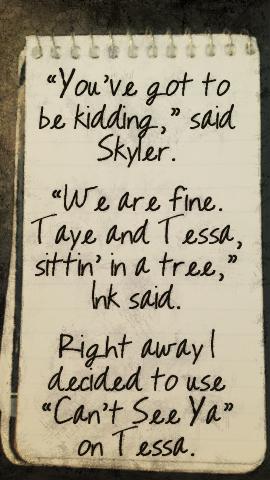 “You’ve got to
be kidding,” said
Skyler.
“We are fine.
Taye and Tessa,
sittin’ in a tree,”
Ink said.
Right away I
decided to use
“Can’t See Ya”
on Tessa.